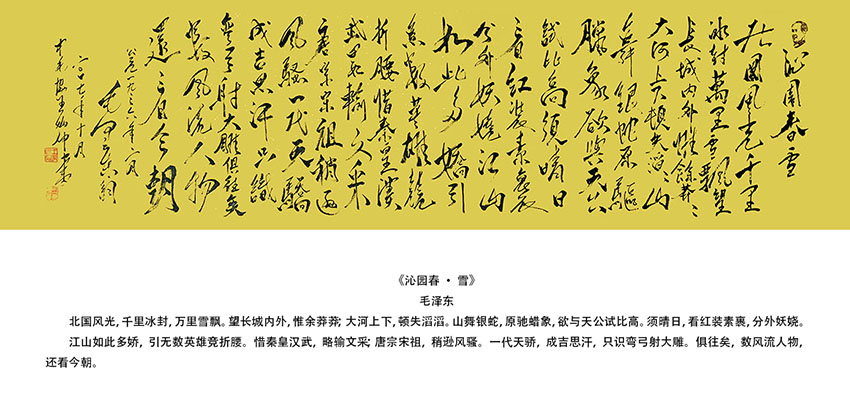 沁園春雪
北國風光千里
冰封萬里雪飄望
長城内外惟餘莽々
大河上下頓失滔々山
舞銀蛇原驅
臘象欲與天公
試比高須晴日
看紅裝素裹
分外妖嬈江山
如此多嬌引
無數英雄競
折腰惜秦皇漢
武略輸文采
唐宗宋祖稍遜
風騷一代天驕
成吉思汗只識
彎弓射大雕俱往矣
數風流人物
還看今朝
公元一九三六年二月
毛澤東詞
二〇一七年十月
《沁园春 · 雪》
毛泽东
北国风光,千里冰封,万里雪飘。望长城内外,惟余莽莽;大河上下,顿失滔滔。山舞银蛇,原驰蜡象,欲与天公试比高。须晴日,看红装素裹,分外妖娆。
江山如此多娇,引无数英雄竞折腰。惜秦皇汉武,略输文采;唐宗宋祖,稍逊风骚。一代天骄,成吉思汗,只识弯弓射大雕。俱往矣,数风流人物,
还看今朝。